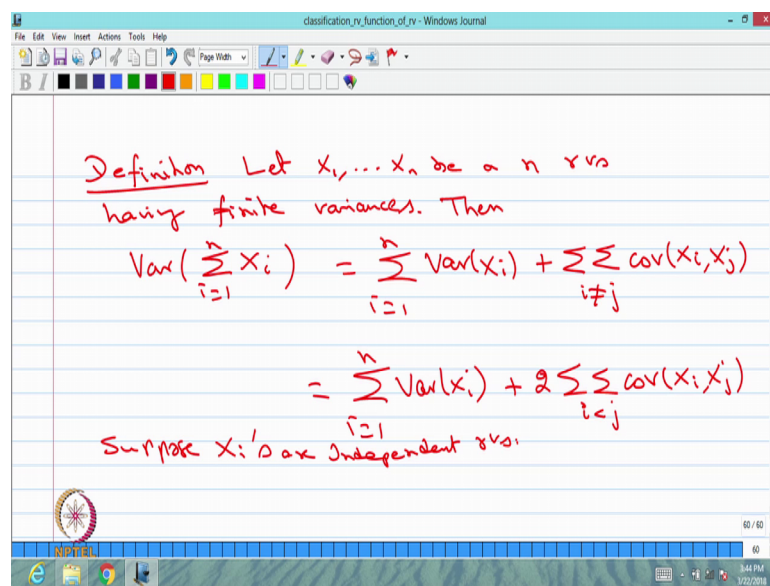 classification_rv_function_of_rv - Windows Journal
File Edit View Insert Actions Tools Help
Page Width
B I
Definition Let X₁, ... Xₙ be a n rvs
having finite variances. Then
Var(∑ᵢ₌₁ⁿ Xᵢ) = ∑ᵢ₌₁ⁿ Var(Xᵢ) + ∑∑_{i≠j} cov(Xᵢ, Xⱼ)
= ∑ᵢ₌₁ⁿ Var(Xᵢ) + 2 ∑∑_{i<j} cov(Xᵢ, Xⱼ)
Suppose Xᵢ's are Independent rvs.
60 / 60
NPTEL
60
3:44 PM